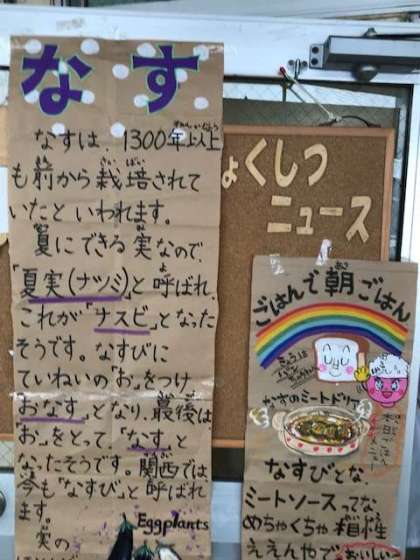 なす
なすは、1300年以上
も前から栽培されて
いたといわれます。
夏にできる実なので、
「夏実(ナツミ)」と呼ばれ、
これが「ナスビ」となった
そうです。なすびに
ていねいの「お」をつけ
「おなす」となり、最後は
「お」をとって、「なす」と
なったそうです。関西では、
今も「なすび」と呼ばれ
ます。
Eggplants
実の
ょくしつ
ニュース
ごはんで朝ごはん
なすのミートドリア
なすびとな
ミートソースってな、
めちゃくちゃ相性
ええんやで
おいしい